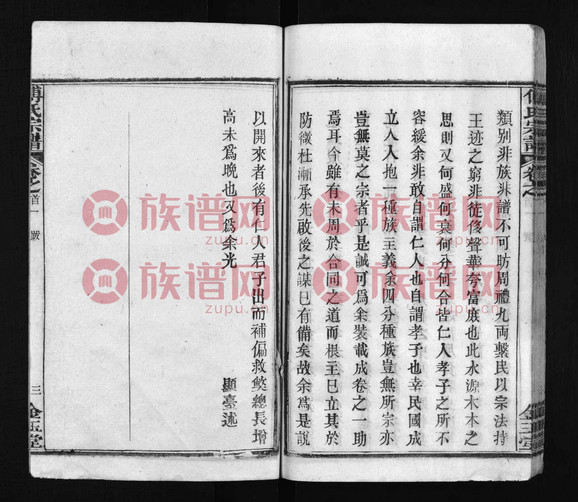 類別非族非譜不可昉周禮九兩繫民以宗法持
王迹之窮非從侈聲華夸富庶也此水源木本之
思則又何盛何衰何分何合皆仁人孝子之所不
容緩余非敢自謂仁人也自謂孝子也幸民國成
立人人抱一種族主義余四分種族豈無所宗亦
豈無莫之宗者乎是誠可為余裝載成卷之一助
焉耳今雖有未周於合同之道而根主已立其於
防微杜漸承先啟後之謀已有備矣故余為是說
以開來者後有仁人君子出而補偏救弊總長增
高未為晚也又為余光
顯臺述
傅氏宗譜
卷之
首一
三
金玉堂
族谱网
zupu.cn
族谱网
zupu.cn
族谱网
zupu.cn
族谱网
zupu.cn